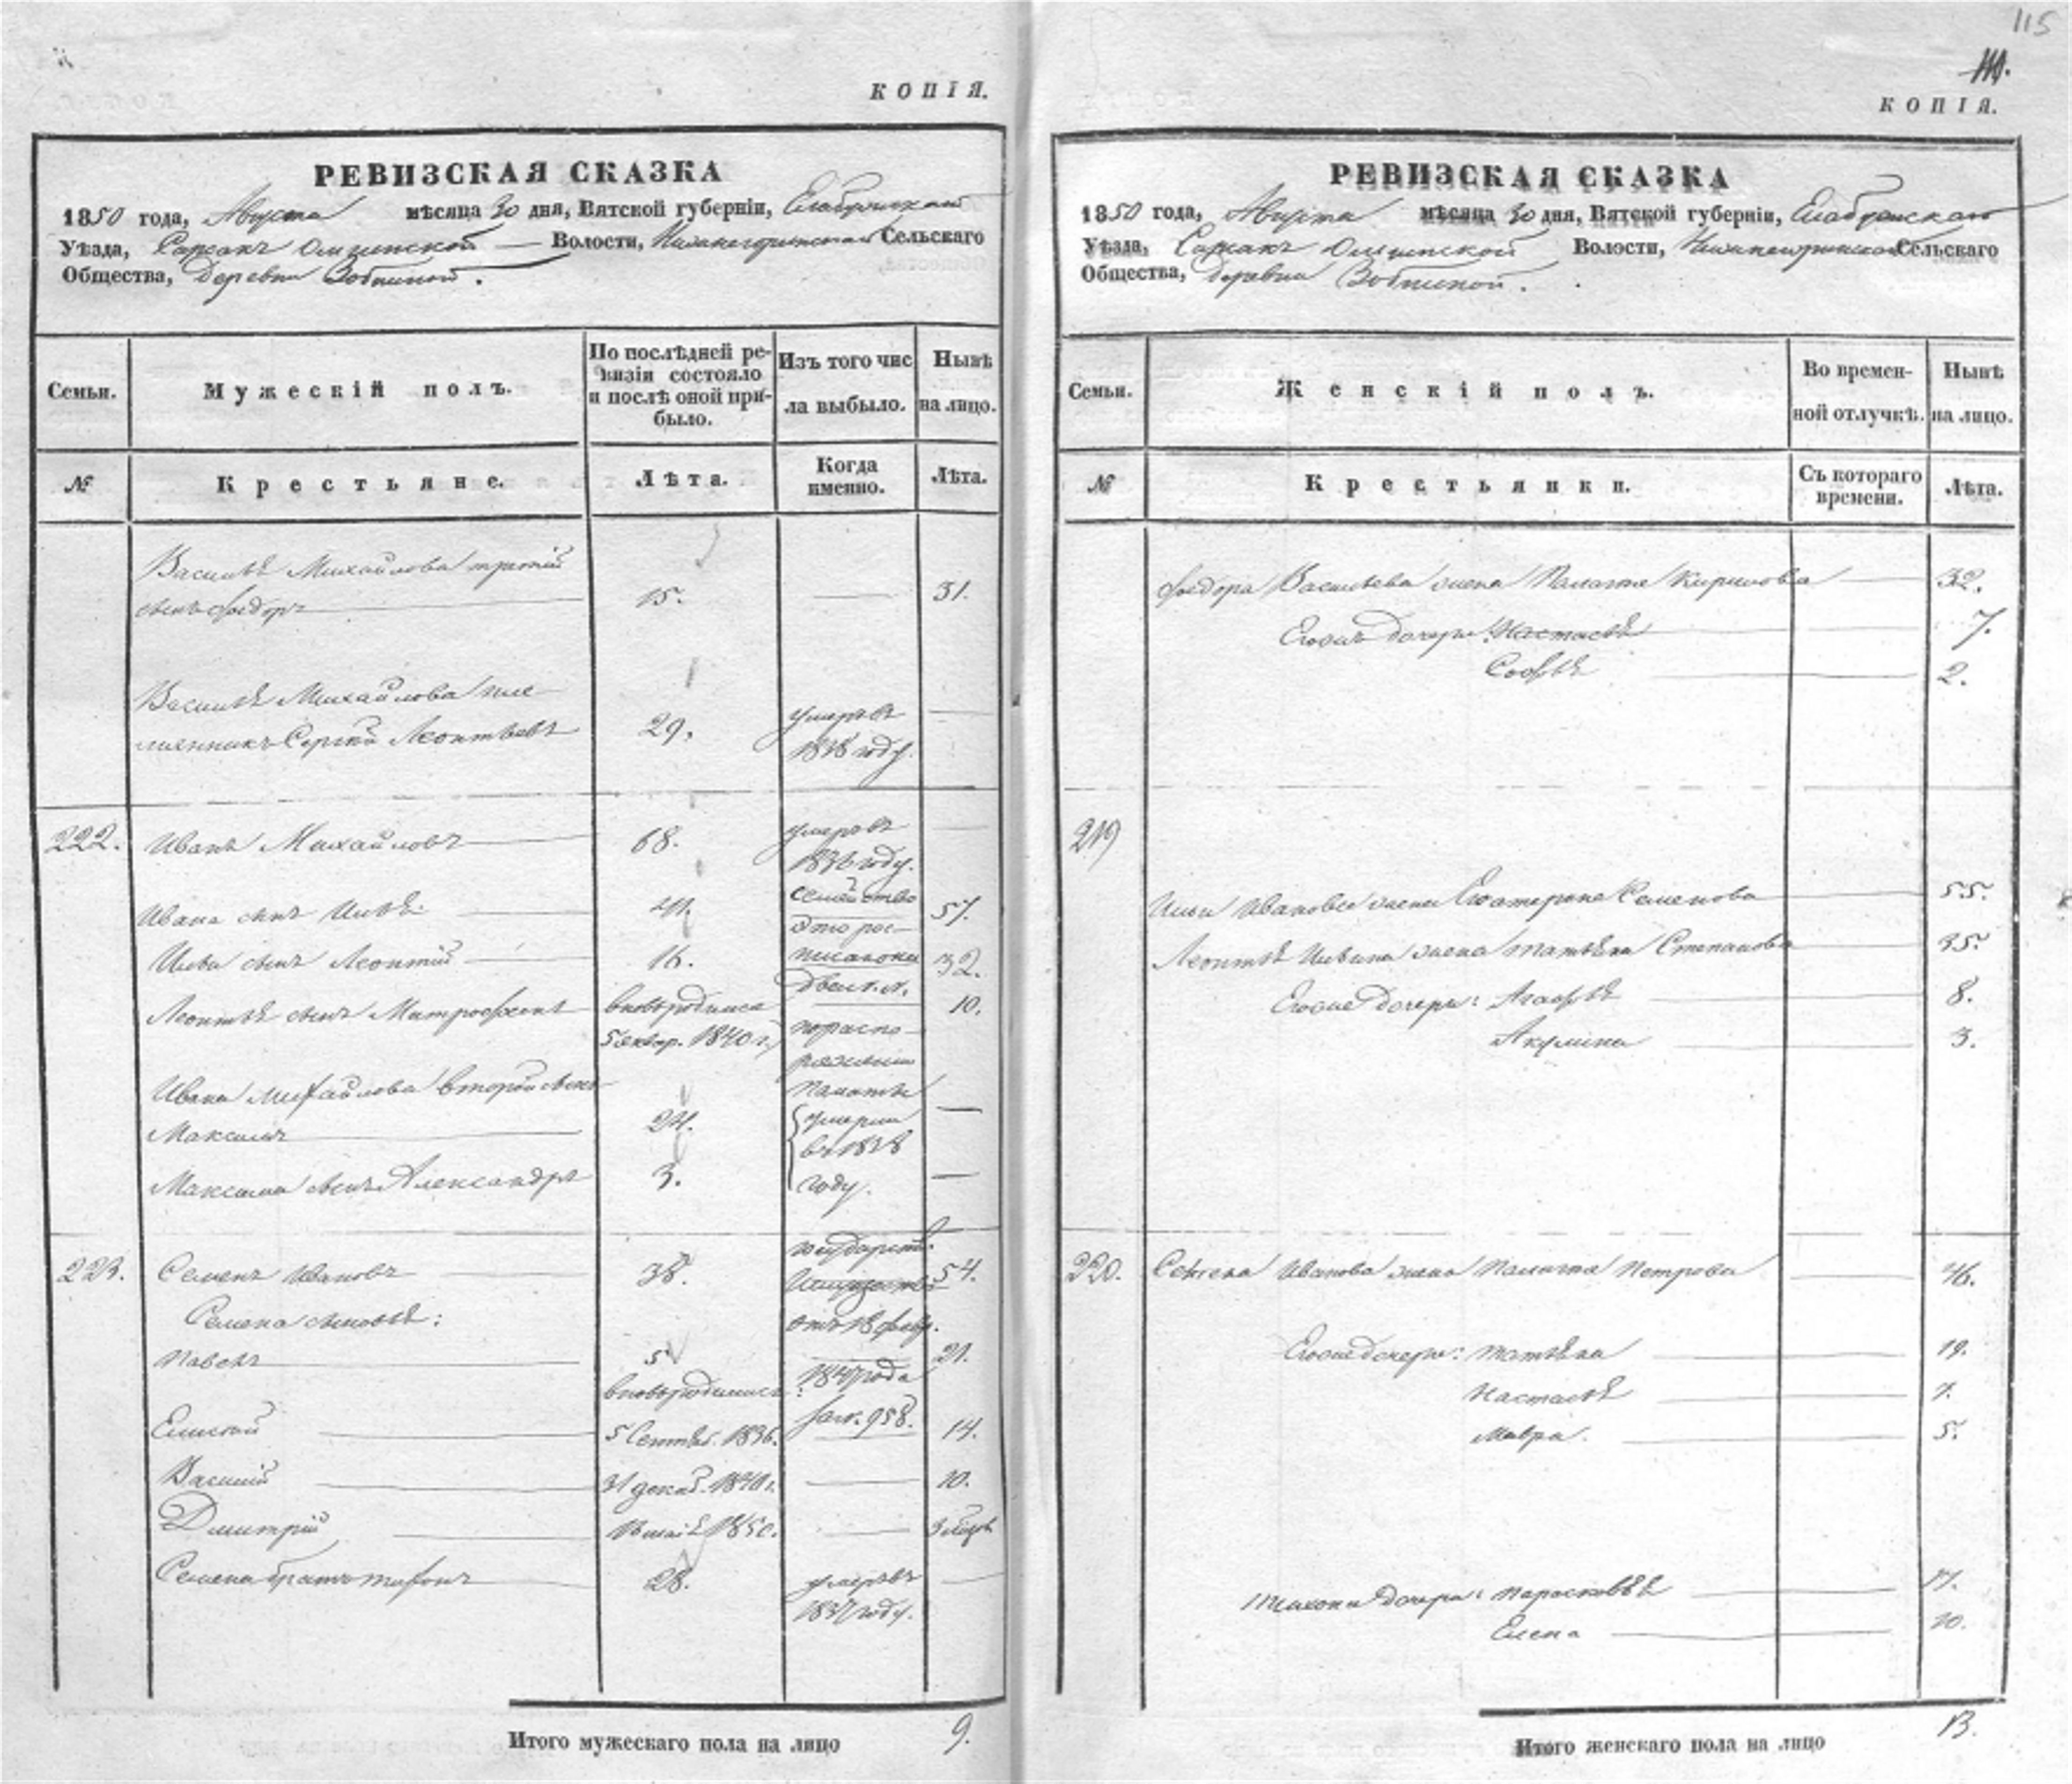 115
КОПІЯ.
РЕВИЗСКАЯ СКАЗКА
1850 года, Августа мѣсяца 30 дня, Вятской губерніи, Елабужскаго
Уѣзда, Волости, Сельскаго
Общества, Деревни
Семьи.
Мужескій полъ.
По послѣдней ре-
визіи состояло
и послѣ оной при-
было.
Изъ того чис
ла выбыло.
Нынѣ
на лицо.
№
Крестьяне.
Лѣта.
Когда
именно.
Лѣта.
Василья Михайлова третій
сынъ Федоръ 15. 31.
Василья Михайлова пле-
мянникъ Сергѣй Леонтьевъ 29. умеръ въ
1838 году.
222. Иванъ Михайловъ 68. умеръ въ
1836 году.
Ивана сынъ Илья 41. семейство 57.
Ильи сынъ Леонтій 16. 32.
Леонтья сынъ Митрофанъ вновьродился 10.
5 январ. 1840 г.
Ивана Михайлова второй сынъ
Максимъ 24. умерли
въ 1838
Максима сынъ Александръ 3. году.
223. Семенъ Ивановъ 38. 54.
Семена сыновья:
Павелъ 5 21.
вновьродились: 1847 года
Елисей 5 Сентяб. 1836. за №. 958. 14.
Василій 31 декаб. 1840 г. 10.
Дмитрій 1850. 3 мѣсяц.
Семена братъ Тихонъ 28. умеръ въ
1837 году.
Итого мужескаго пола на лицо 9.
КОПІЯ.
РЕВИЗСКАЯ СКАЗКА
1850 года, Августа мѣсяца 30 дня, Вятской губерніи, Елабужскаго
Уѣзда, Волости, Сельскаго
Общества, Деревни
Семьи.
Женскій полъ.
Во времен-
ной отлучкѣ.
Нынѣ
на лицо.
№
Крестьянки.
Съ котораго
времени.
Лѣта.
Федора Васильева жена Палагея Кирилова 32.
Егоже дочери: Настасья 7.
Софья 2.
219
Ильи Иванова жена Екатерина Семенова 55.
Леонтья Ильина жена Татьяна Степанова 35.
Егоже дочери: Агафья 8.
Акулина 3.
220. Семена Иванова жена Палагея Петрова 46.
Егоже дочери: Татьяна 19.
Настасья 7.
Мавра. 5.
Тихона дочери: Парасковья
Елена
Итого женскаго пола на лицо 13.